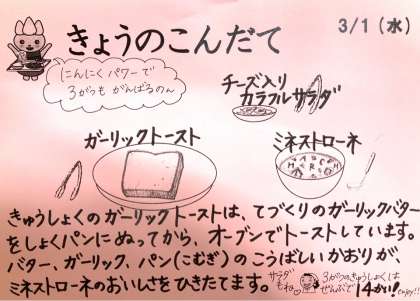 きょうのこんだて
3/1(水)
にんにくパワーで
3がつも がんばるの～
チーズ入り
カラフルサラダ
ガーリックトースト
ミネストローネ
きゅうしょくのガーリックトーストは、てづくりのガーリックバター
をしょくパンにぬってから、オーブンでトーストしています。
バター、ガーリック、パン(こむぎ)のこうばしいかおりが、
ミネストローネのおいしさをひきたてます。
サラダ
もね
3がつのきゅうしょくは
ぜんぶで 14かい!
enjoy!!